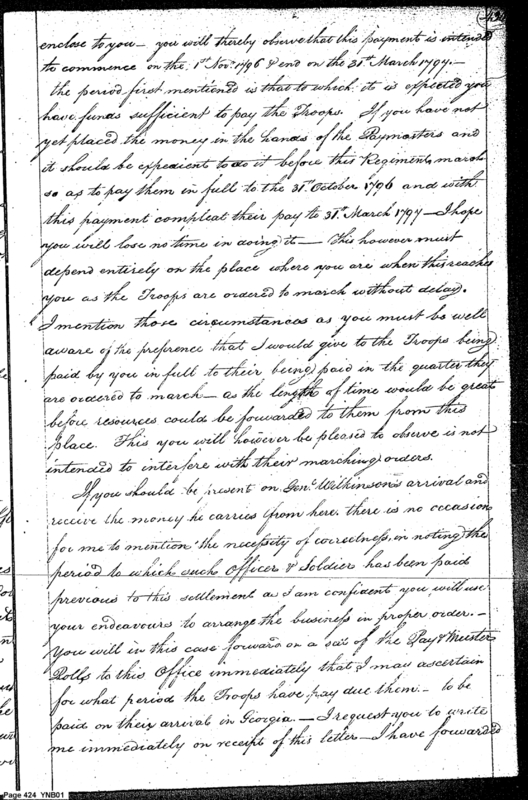 424
enclose to you – you will thereby observe that this payment is intended
to commence on the 1st Nov. 1796 & end on the 31st March 1797. –
the period first mentioned is that to which it is expected you
have funds sufficient to pay the Troops. If you have not
yet placed the money in the hands of the Paymasters and
it should be expedient to do it before this Regiment march
so as to pay them in full to the 31st October 1796 and with
this payment compleat their pay to 31st March 1797 – I hope
you will lose no time in doing it – This however must
depend entirely on the place where you are when this reaches
you as the Troops are ordered to march without delay.
I mention those circumstances as you must be well
aware of the preference that I would give to the Troops being
paid by you in full to their being paid in the quarter they
are ordered to march – as the length of time would be great
before resources could be forwarded to them from this
place. This you will however be pleased to observe is not
intended to interfere with their marching orders.
If you should be present on Genl. Wilkinson's arrival and
receive the money he carries from here there is no occasion
for me to mention the necessity of correctness, in noting the
period to which each Officer & Soldier has been paid
previous to this settlement as I am confident you will use
your endeavours to arrange the business in proper order. –
You will in this case forward on a set of the Pay & Muster
Rolls to this Office immediately that I may ascertain
for what period the Troops have pay due them – to be
paid on their arrival in Georgia. – I request you to write
me immediately on receipt of this letter – I have forwarded
Page 424 YNB01